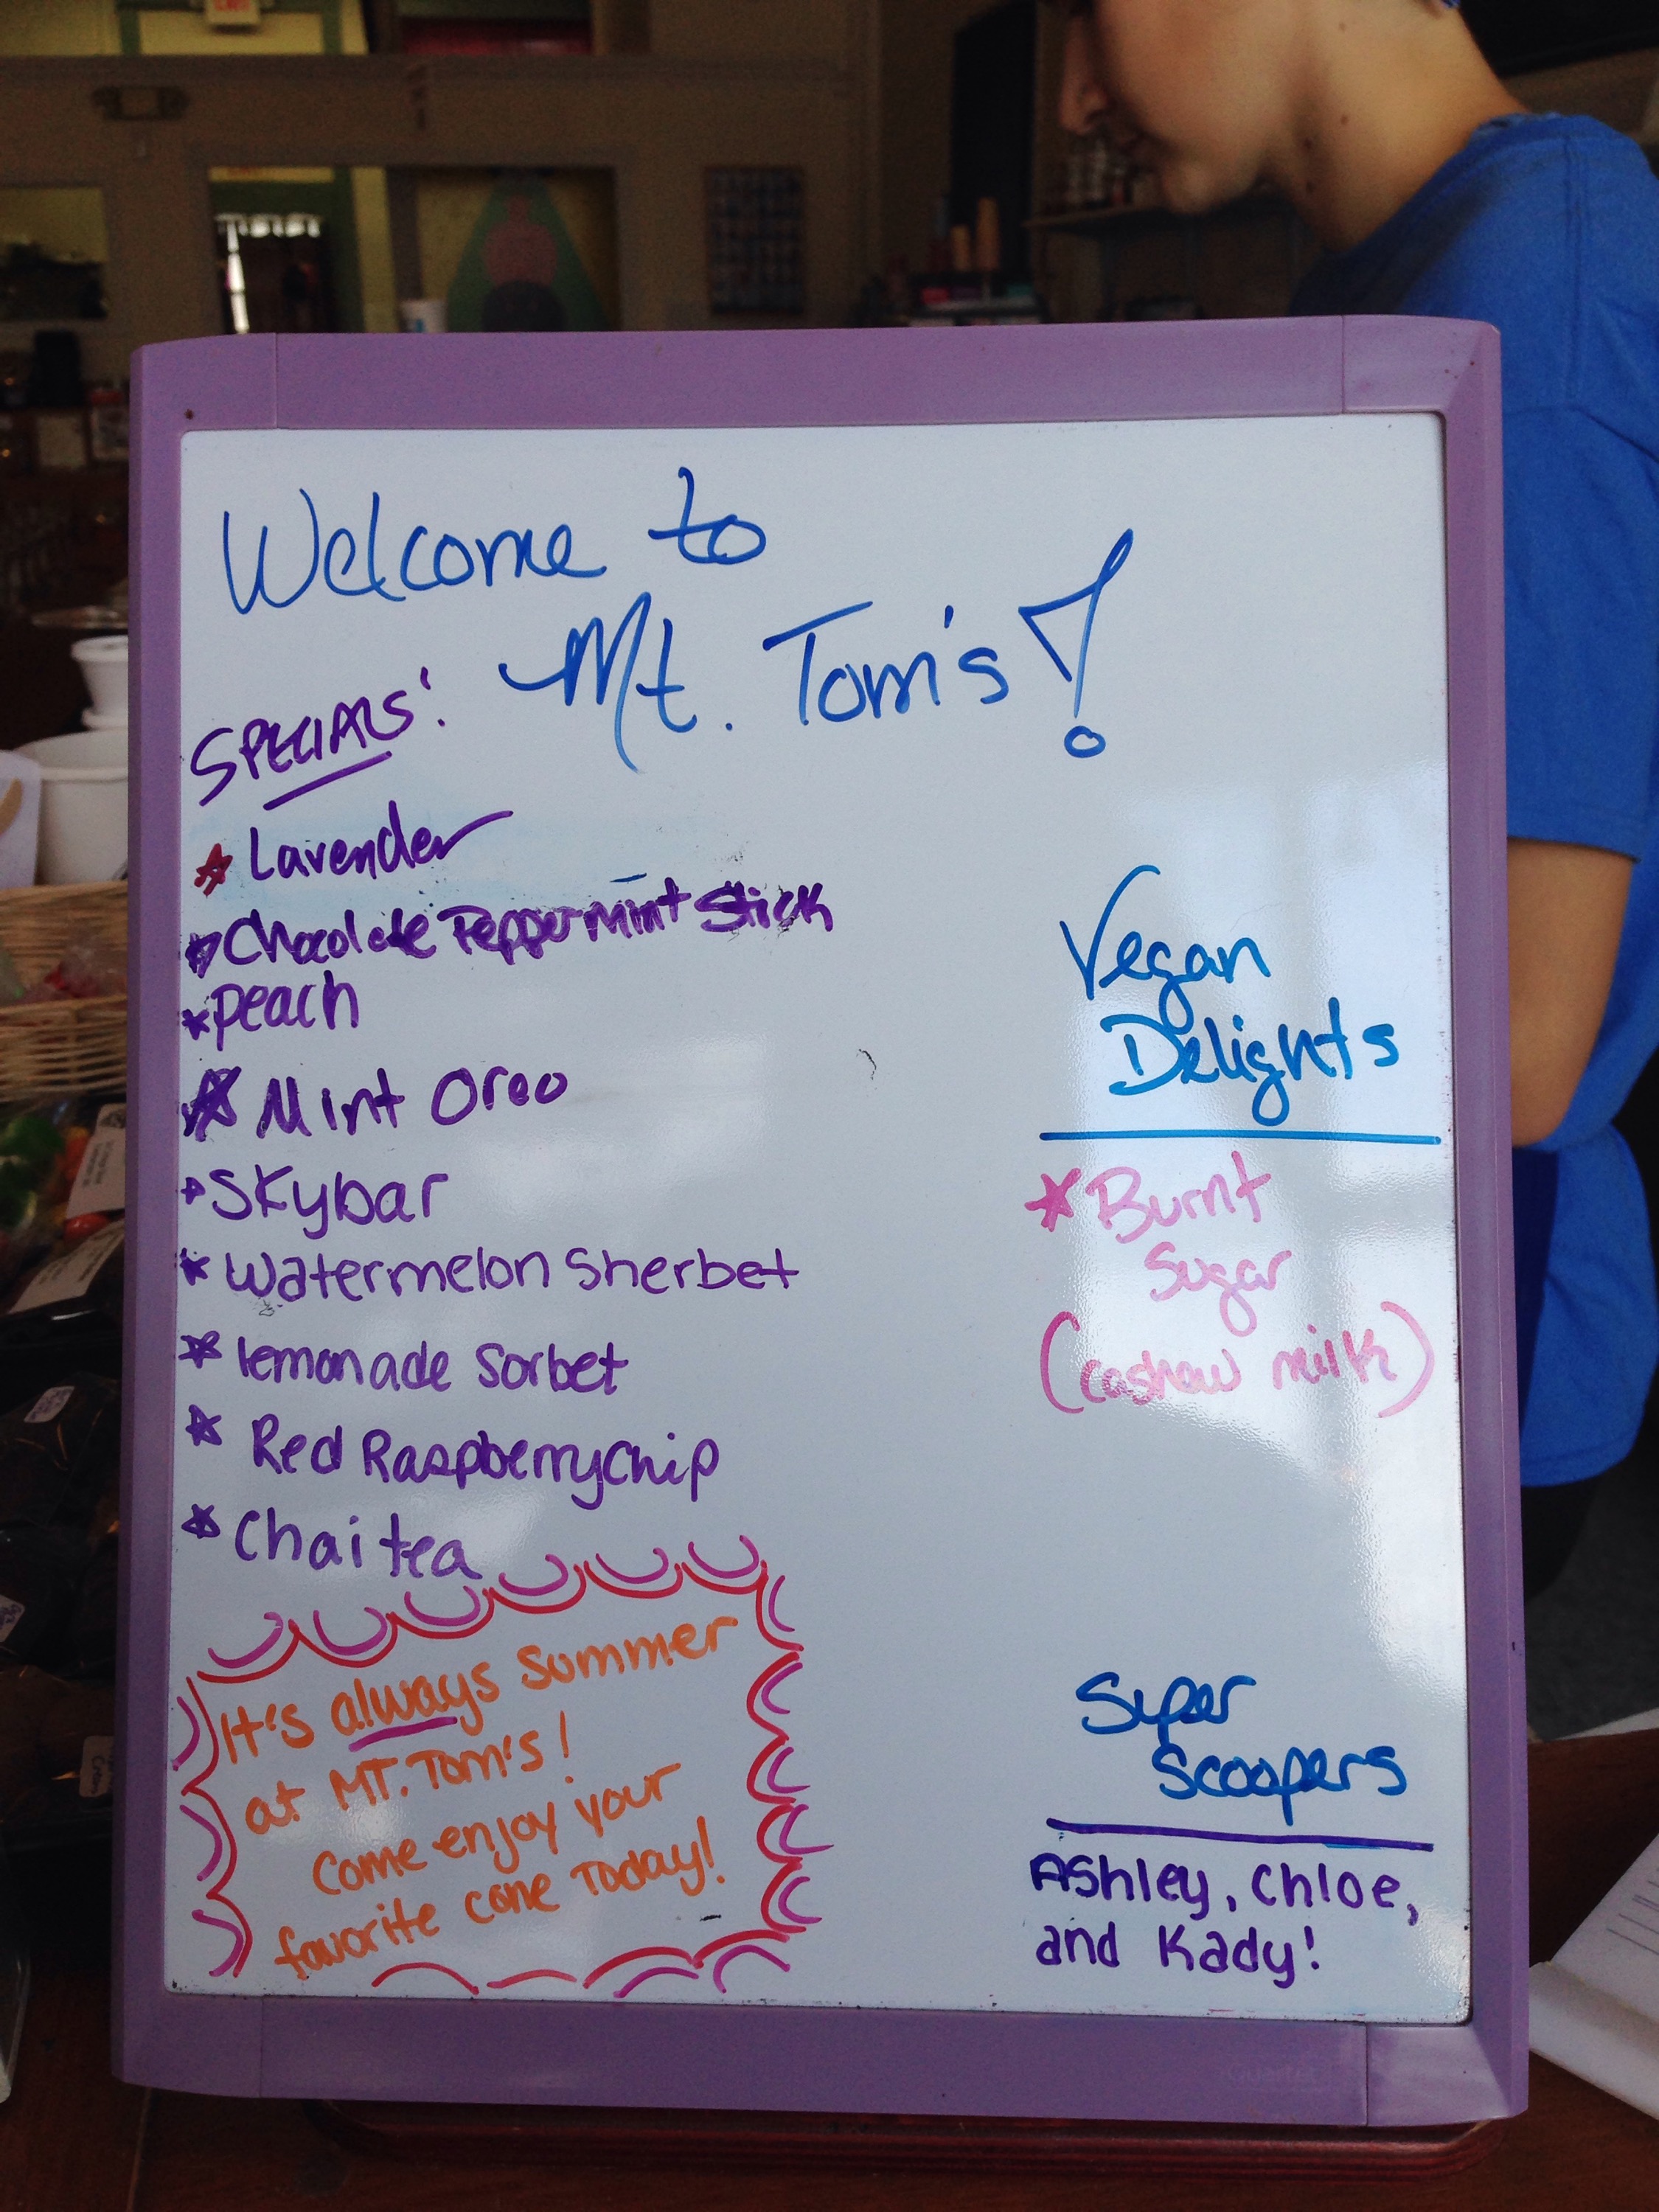 Welcome to
Mt. Tom's!
SPECIALS:
Lavender
Chocolate Peppermint Stick
peach
Mint Oreo
Skybar
Watermelon Sherbet
lemonade sorbet
Red Raspberry chip
Chai tea
It's always summer
at MT. Tom's!
Come enjoy your
favorite cone Today!
Vegan
Delights
Burnt
Sugar
(cashew milk)
Super
Scoopers
Ashley, Chloe,
and Kady!